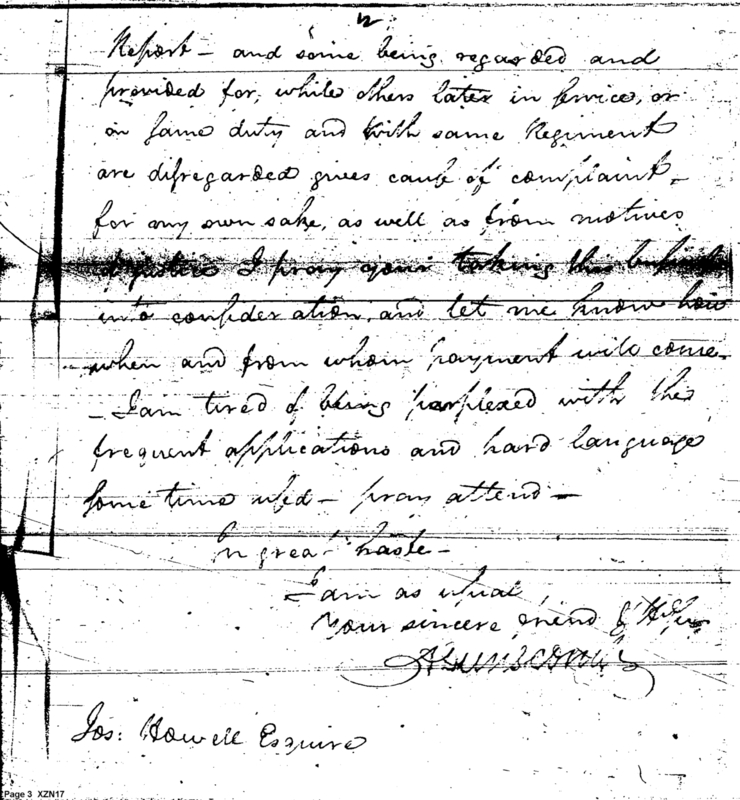 2
Report – and some being regarded and
provided for, while others later in service, or
on same duty and with same Regiment
are disregarded gives cause of complaint –
for my own sake, as well as from motives
of justice I pray your taking this business
into consideration, and let me know how
when and from whom payment will come –
– I am tired of being perplexed with the
frequent applications and hard language
some time used – pray attend –
In great haste –
I am as usual,
Your sincere friend &
Jos: Howell Esquire
Page 3 XZN17